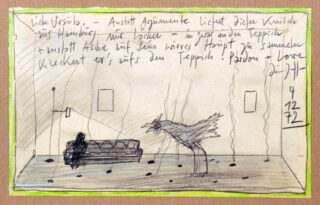 Liebe Ursula, – Anstatt Argumente liefert dieser Knilch
aus Hamburg nur Löcher – in den Teppich
+ anstatt Asche auf sein Haupt zu sammeln
kleckert er's aufs den Teppich! Pardon + Love
4
12
72